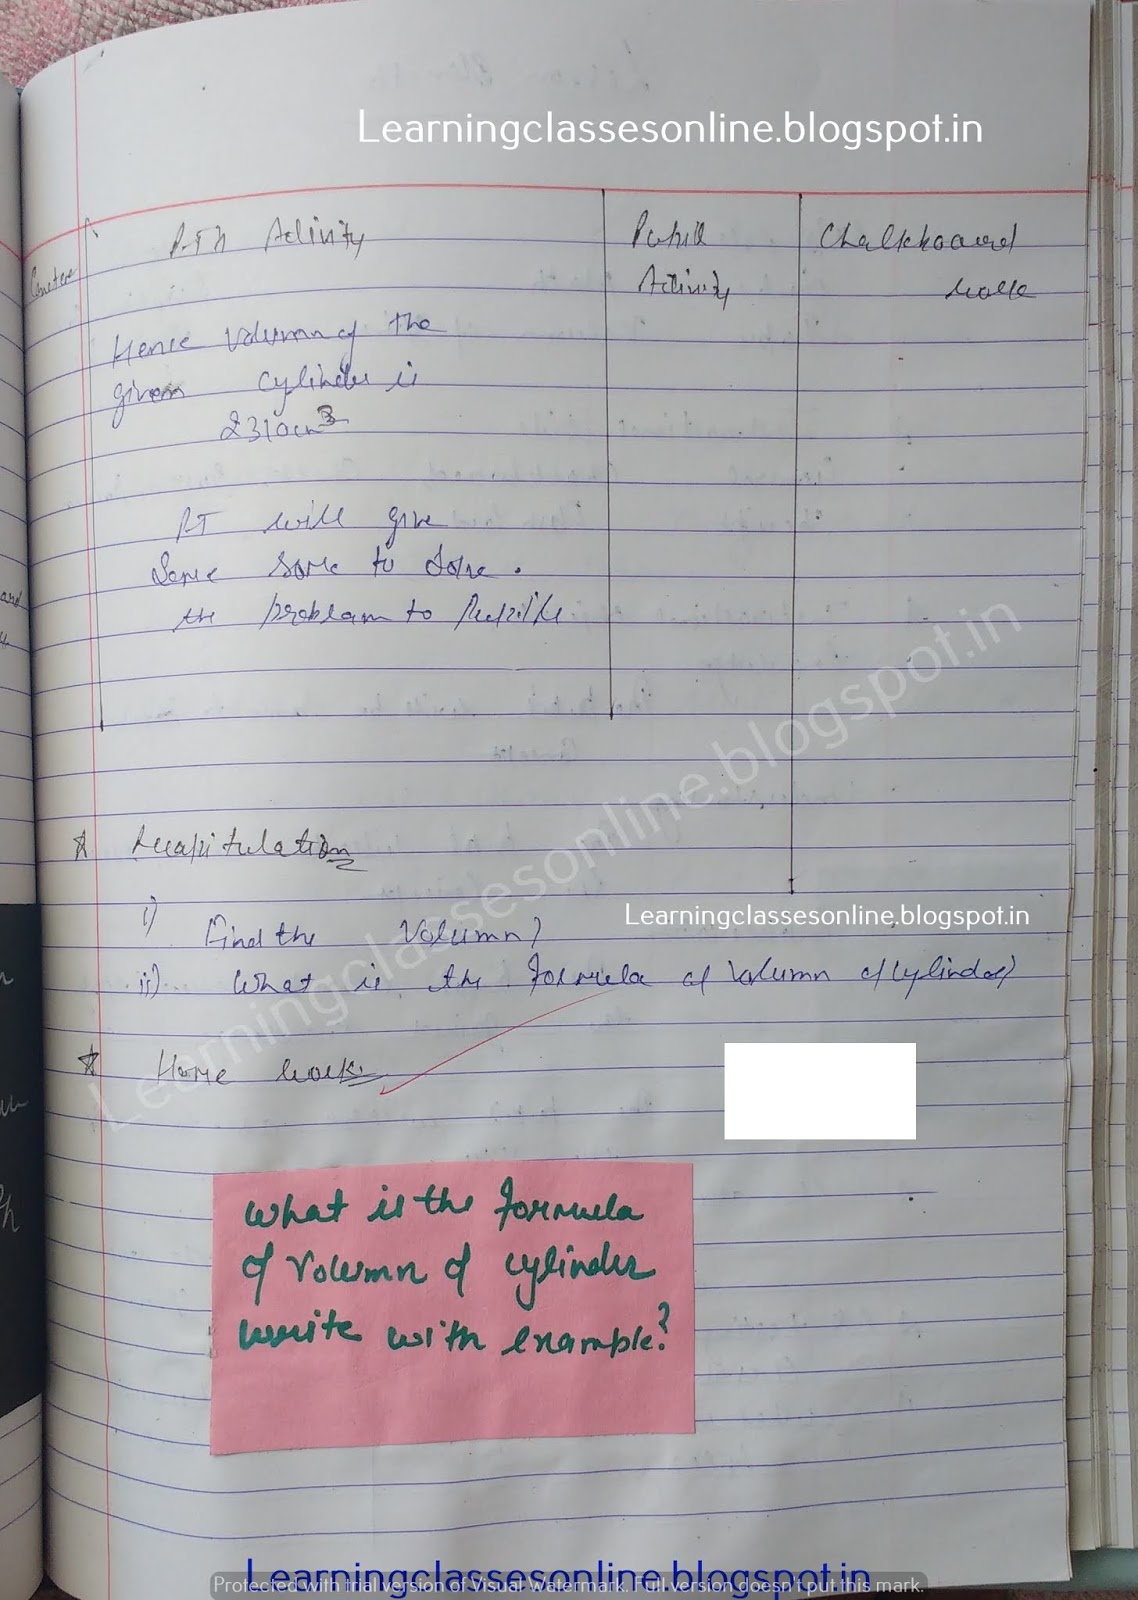 Learningclassesonline.blogspot.in
Content
P.T's Activity
Pupil
Activity
Chalkboard
work
Hence volumn of the
given cylinder is
2310cm3
P.T will give
Some to solve.
the problem to
★ Recapitulation
i) Find the Volumn?
Learningclassesonline.blogspot.in
ii) What is the formula of volumn of cylinder?
★ Home work
Learningclassesonline.blogspot.in
What is the formula
of volumn of cylinder
write with example?
Learningclassesonline.blogspot.in
Protected with trial version of Visual Watermark. Full version doesn't put this mark.